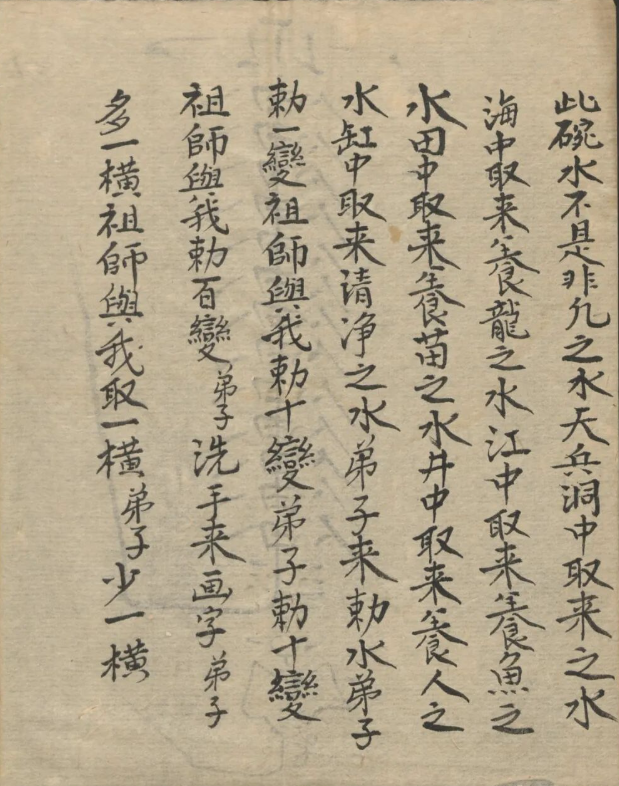 此碗水不是非凢之水天兵洞中取来之水
海中取来養龍之水江中取来養魚之
水田中取来養苗之水井中取来養人之
水缸中取来请净之水弟子来勅水弟子
勅一變祖師與我勅十變弟子勅十變
祖師與我勅百變弟子洗手来画字弟子
多一横祖師與我取一横弟子少一横